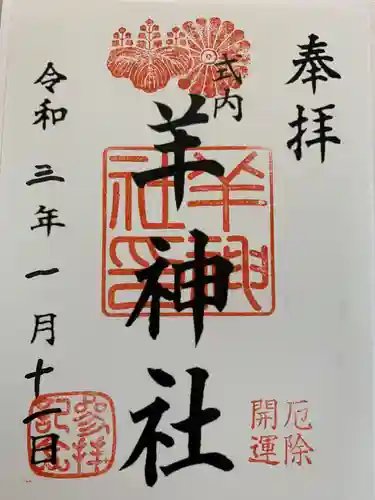 奉拝
式内
羊神社
羊神社印
令和三年一月十一日
厄除
開運
参拝
記念